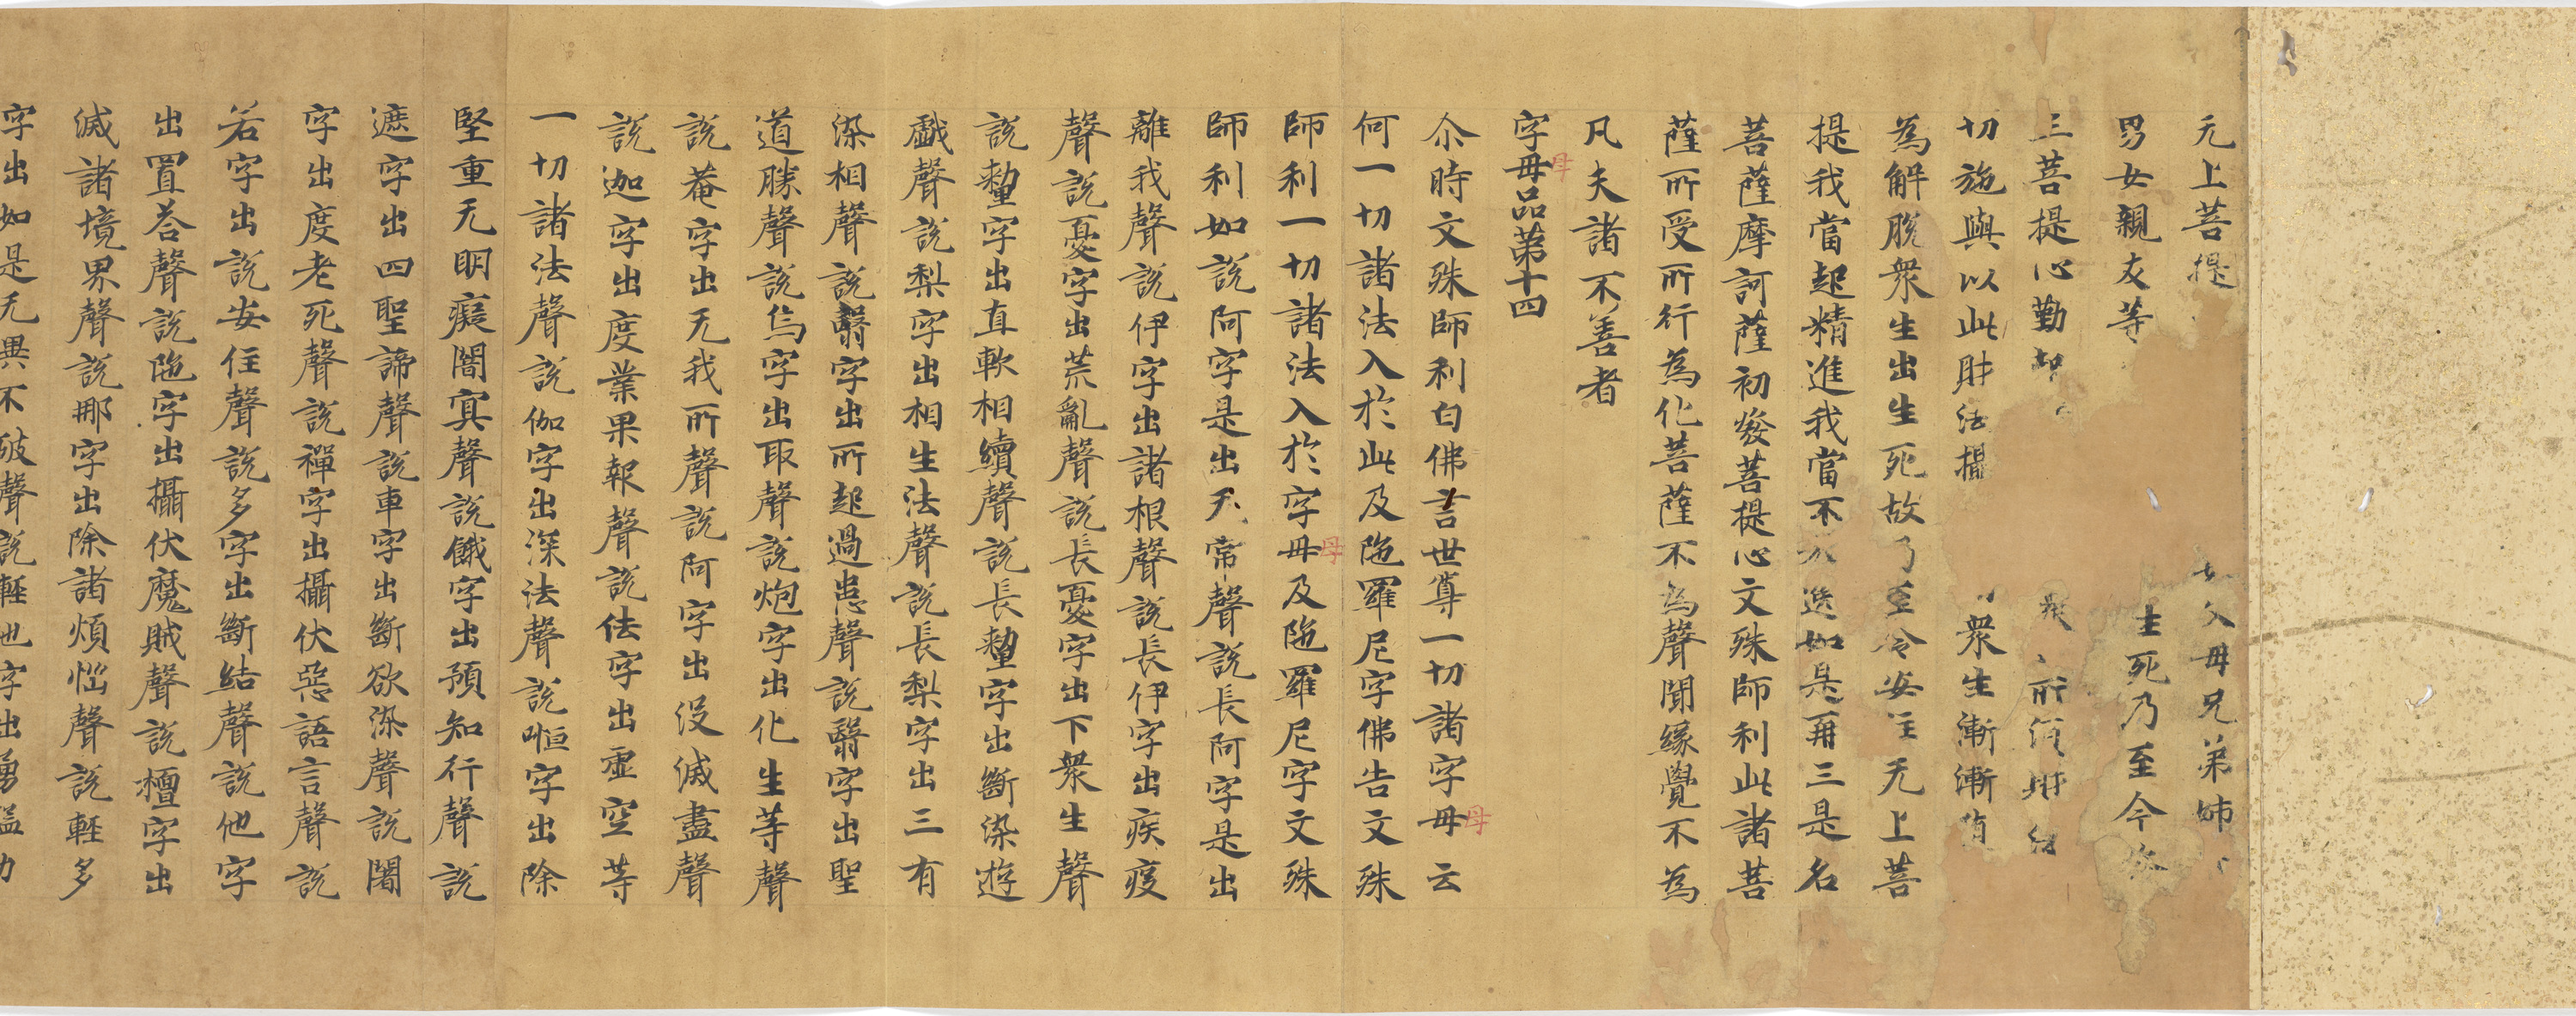 无上菩提 父母兄弟姉
男女親友等 生死乃至今
三菩提心勤 所須財
切施與以此財法攝 衆生漸漸
為解脫衆生出生死故乃至令安住无上菩
提我當起精進我當不放逸如是再三是名
菩薩摩訶薩初發菩提心文殊師利此諸菩
薩所受所行為化菩薩不為聲聞緣覺不為
凡夫諸不善者
字母品第十四
母
尒時文殊師利白佛言世尊一切諸字母云
母
何一切諸法入於此及陁羅尼字佛告文殊
師利一切諸法入於字母及陁羅尼字文殊
母
師利如說阿字是出无常聲說長阿字是出
離我聲說伊字出諸根聲說長伊字出疾疫
聲說憂字出荒亂聲說長憂字出下衆生聲
說釐字出直軟相續聲說長釐字出斷染遊
戲聲說梨字出相生法聲說長梨字出三有
染相聲說翳字出所起過患聲說翳字出聖
道勝聲說烏字出取聲說炮字出化生等聲
說菴字出无我所聲說阿字出沒滅盡聲
說迦字出度業果報聲說佉字出虛空等
一切諸法聲說伽字出深法聲說恒字出除
堅重无明癡闇冥聲說餓字出預知行聲說
遮字出四聖諦聲說車字出斷欲染聲說闍
字出度老死聲說禪字出攝伏惡語言聲說
若字出說安住聲說多字出斷結聲說他字
出置荅聲說陁字出攝伏魔賊聲說檀字出
滅諸境界聲說那字出除諸煩惱聲說輕多
字出如是无異不破聲說輕他字出勇猛力